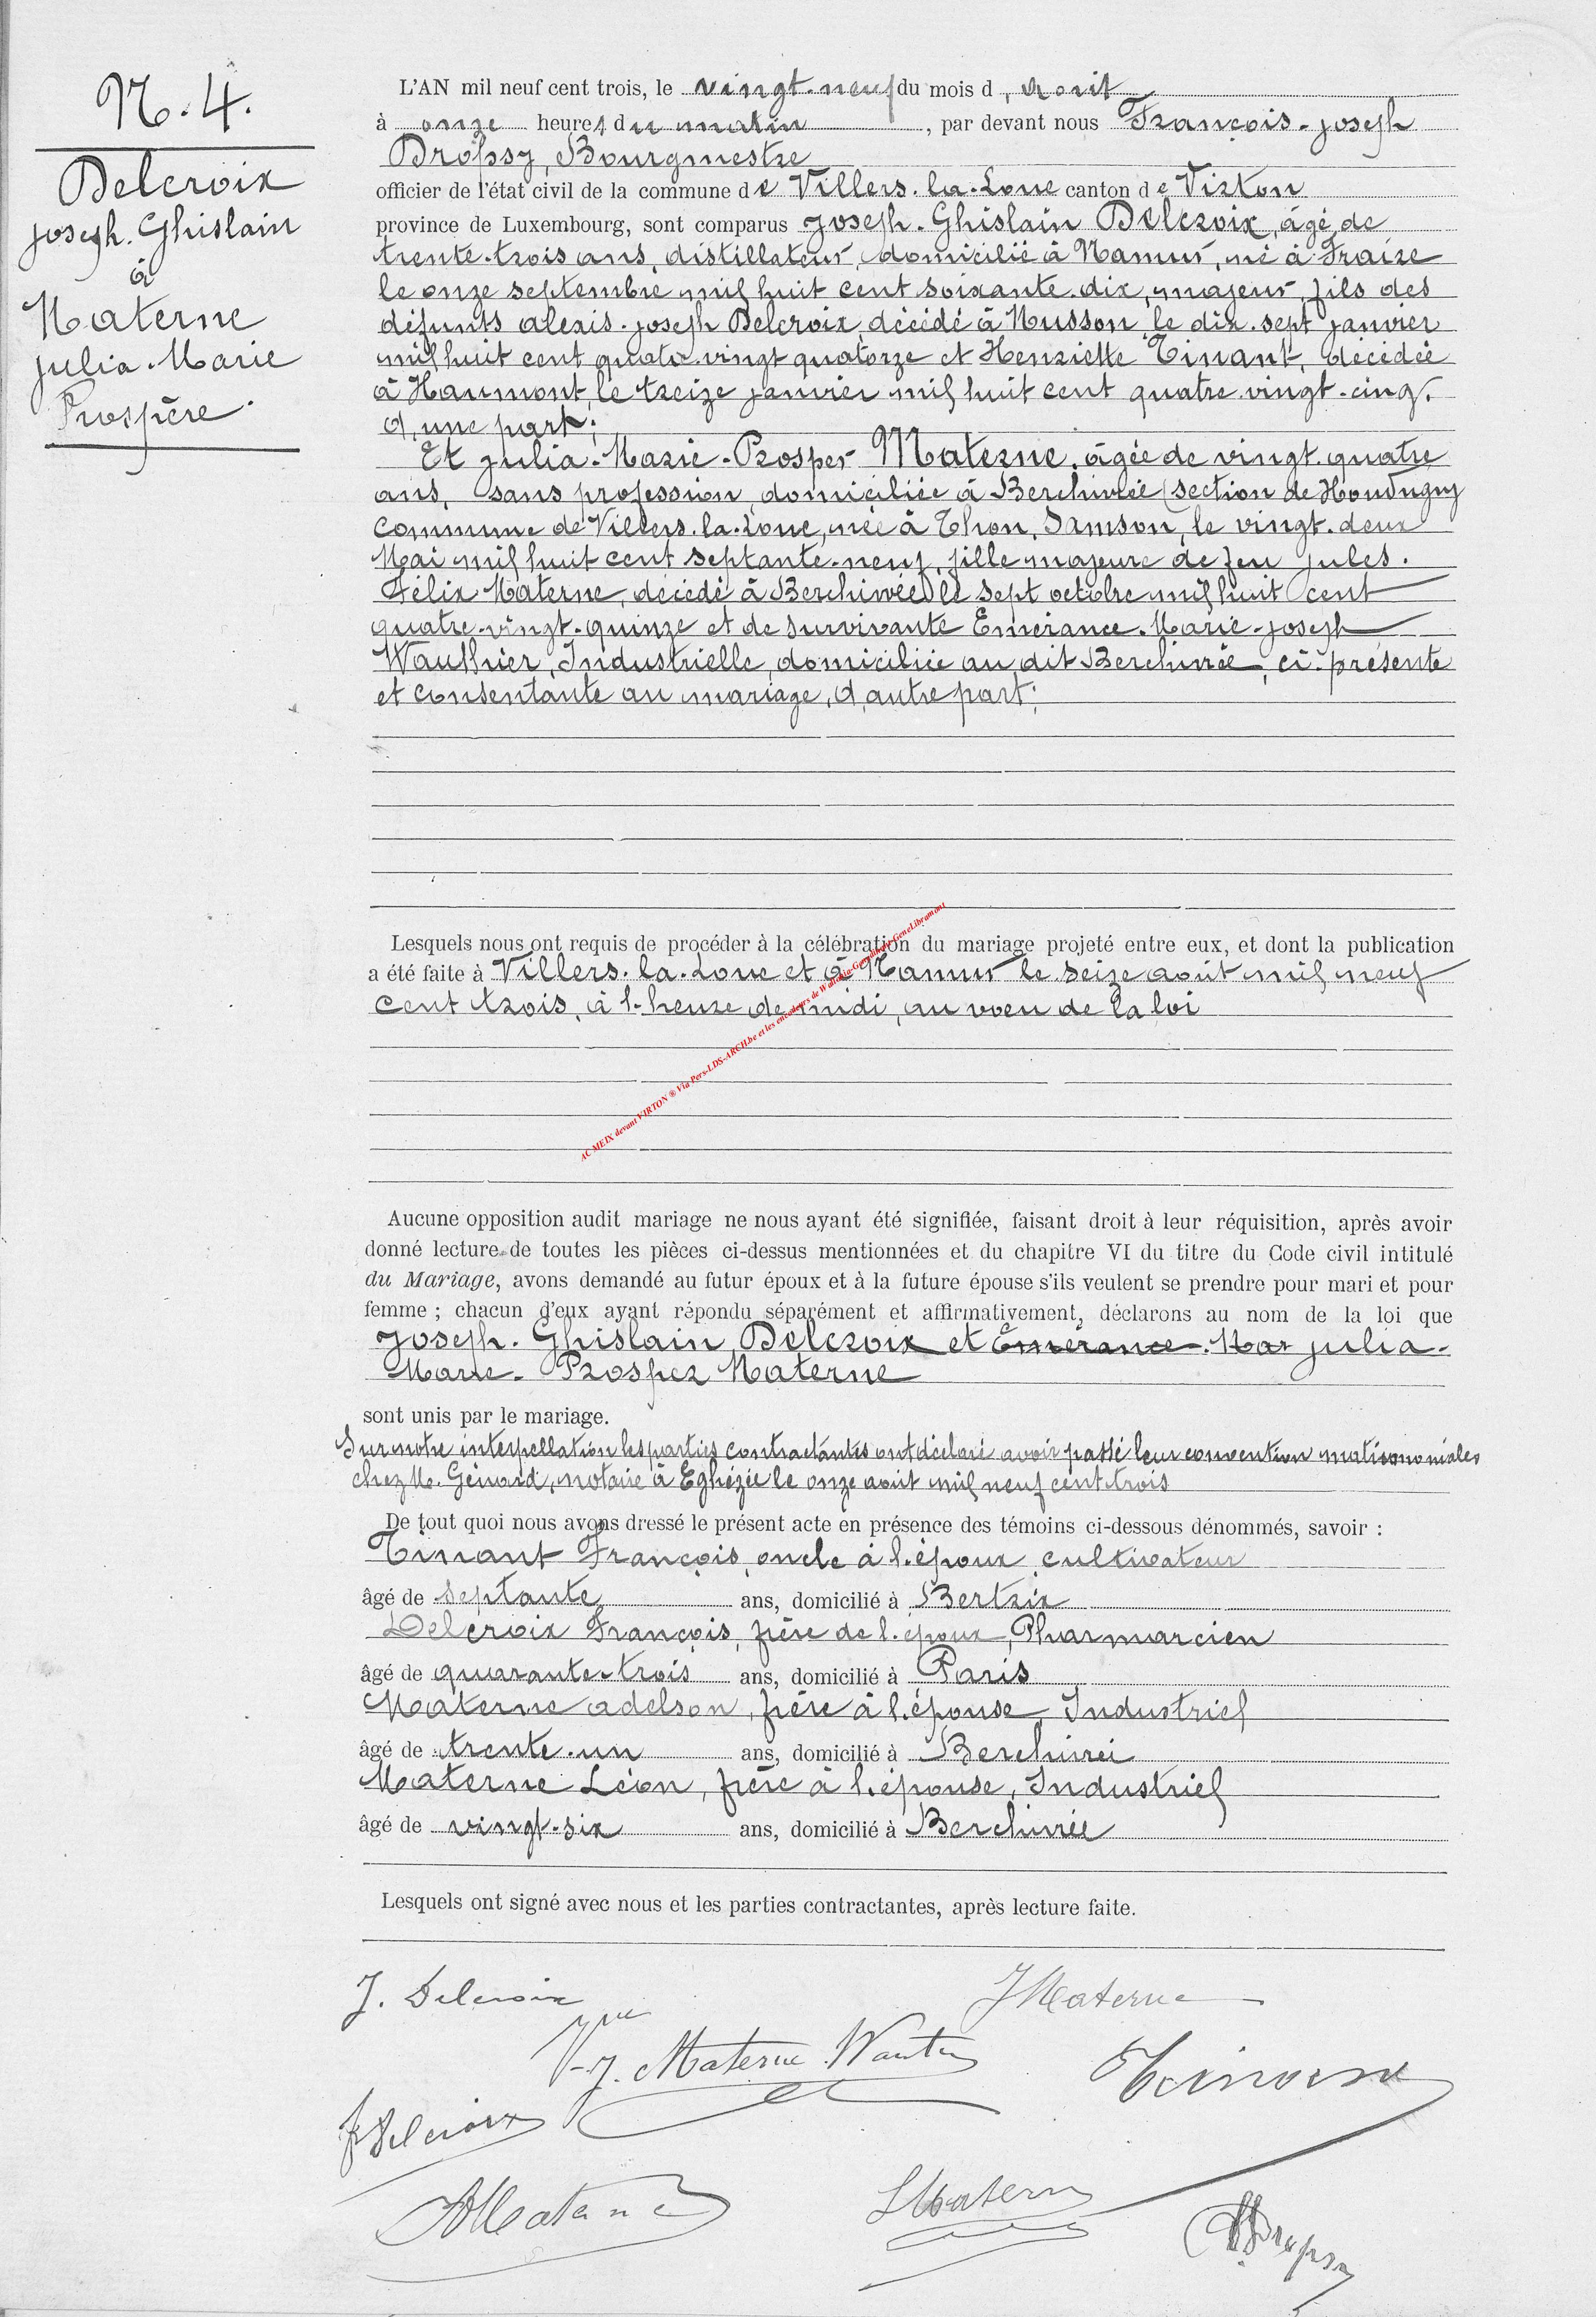 N. 4.
Delcroix
Joseph. Ghislain
à
Materne
Julia. Marie
Prospère.
L'AN mil neuf cent trois, le vingt-neuf du mois d, août
à onze heures du matin, par devant nous François-Joseph
Dropsy, Bourgmestre
officier de l'état civil de la commune de Villers-la-Loue canton de Virton
province de Luxembourg, sont comparus Joseph. Ghislain Delcroix, âgé de
trente-trois ans, distillateur, domicilié à Namur, né à Fraire
le onze septembre mil huit cent soixante-dix, majeur, fils des
défunts Alexis. Joseph Delcroix, décédé à Musson, le dix-sept janvier
mil huit cent quatre-vingt quatorze et Henriette Tinant, décédée
à Hamont, le treize janvier mil huit cent quatre vingt-cinq,
d'une part;
Et Julia-Marie-Prosper Materne, âgée de vingt-quatre
ans, sans profession, domiciliée à Berchiwée (section de Houdrigny
commune de Villers-la-Loue, née à Thon, Samson, le vingt-deux
Mai mil huit cent septante-neuf, fille majeure de feu Jules.
Félix Materne, décédé à Berchiwée le sept octobre mil huit cent
quatre-vingt-quinze et de survivante Emérance. Marie-Joseph
Wauthier, Industrielle, domiciliée au dit Berchiwée, ci-présente
et consentante au mariage, d'autre part;
Lesquels nous ont requis de procéder à la célébration du mariage projeté entre eux, et dont la publication
a été faite à Villers-la-Loue et à Namur le seize août mil neuf
cent trois, à l'heure de midi, au voeu de la loi
AC MEIX devant VIRTON ® Via Pers-LDS-ARCH.be et les encodeurs de GeneLibramont
Aucune opposition audit mariage ne nous ayant été signifiée, faisant droit à leur réquisition, après avoir
donné lecture de toutes les pièces ci-dessus mentionnées et du chapitre VI du titre du Code civil intitulé
du Mariage, avons demandé au futur époux et à la future épouse s'ils veulent se prendre pour mari et pour
femme ; chacun d'eux ayant répondu séparément et affirmativement, déclarons au nom de la loi que
Joseph. Ghislain Delcroix et Emérance. Mar Julia-
Marie-Prosper Materne
sont unis par le mariage.
Sur notre interpellation les parties contractantes ont déclaré avoir passé leur convention matrimoniales
chez M. Génard, notaire à Eghézée le onze août mil neuf cent trois
De tout quoi nous avons dressé le présent acte en présence des témoins ci-dessous dénommés, savoir :
Tinant François, oncle à l'époux, cultivateur
âgé de septante ans, domicilié à Bertrix
Delcroix François, frère de l'époux, Pharmarcien
âgé de quarante-trois ans, domicilié à Paris
Materne Adelson, frère à l'épouse, Industriel
âgé de trente-un ans, domicilié à Berchiwéi
Materne Léon, frère à l'épouse, Industriel
âgé de vingt-six ans, domicilié à Berchiwée
Lesquels ont signé avec nous et les parties contractantes, après lecture faite.
J. Delcroix
J Materne
Vve J. Materne Wauth
F Delcroix
AMaterne
LMatern
Dropsy